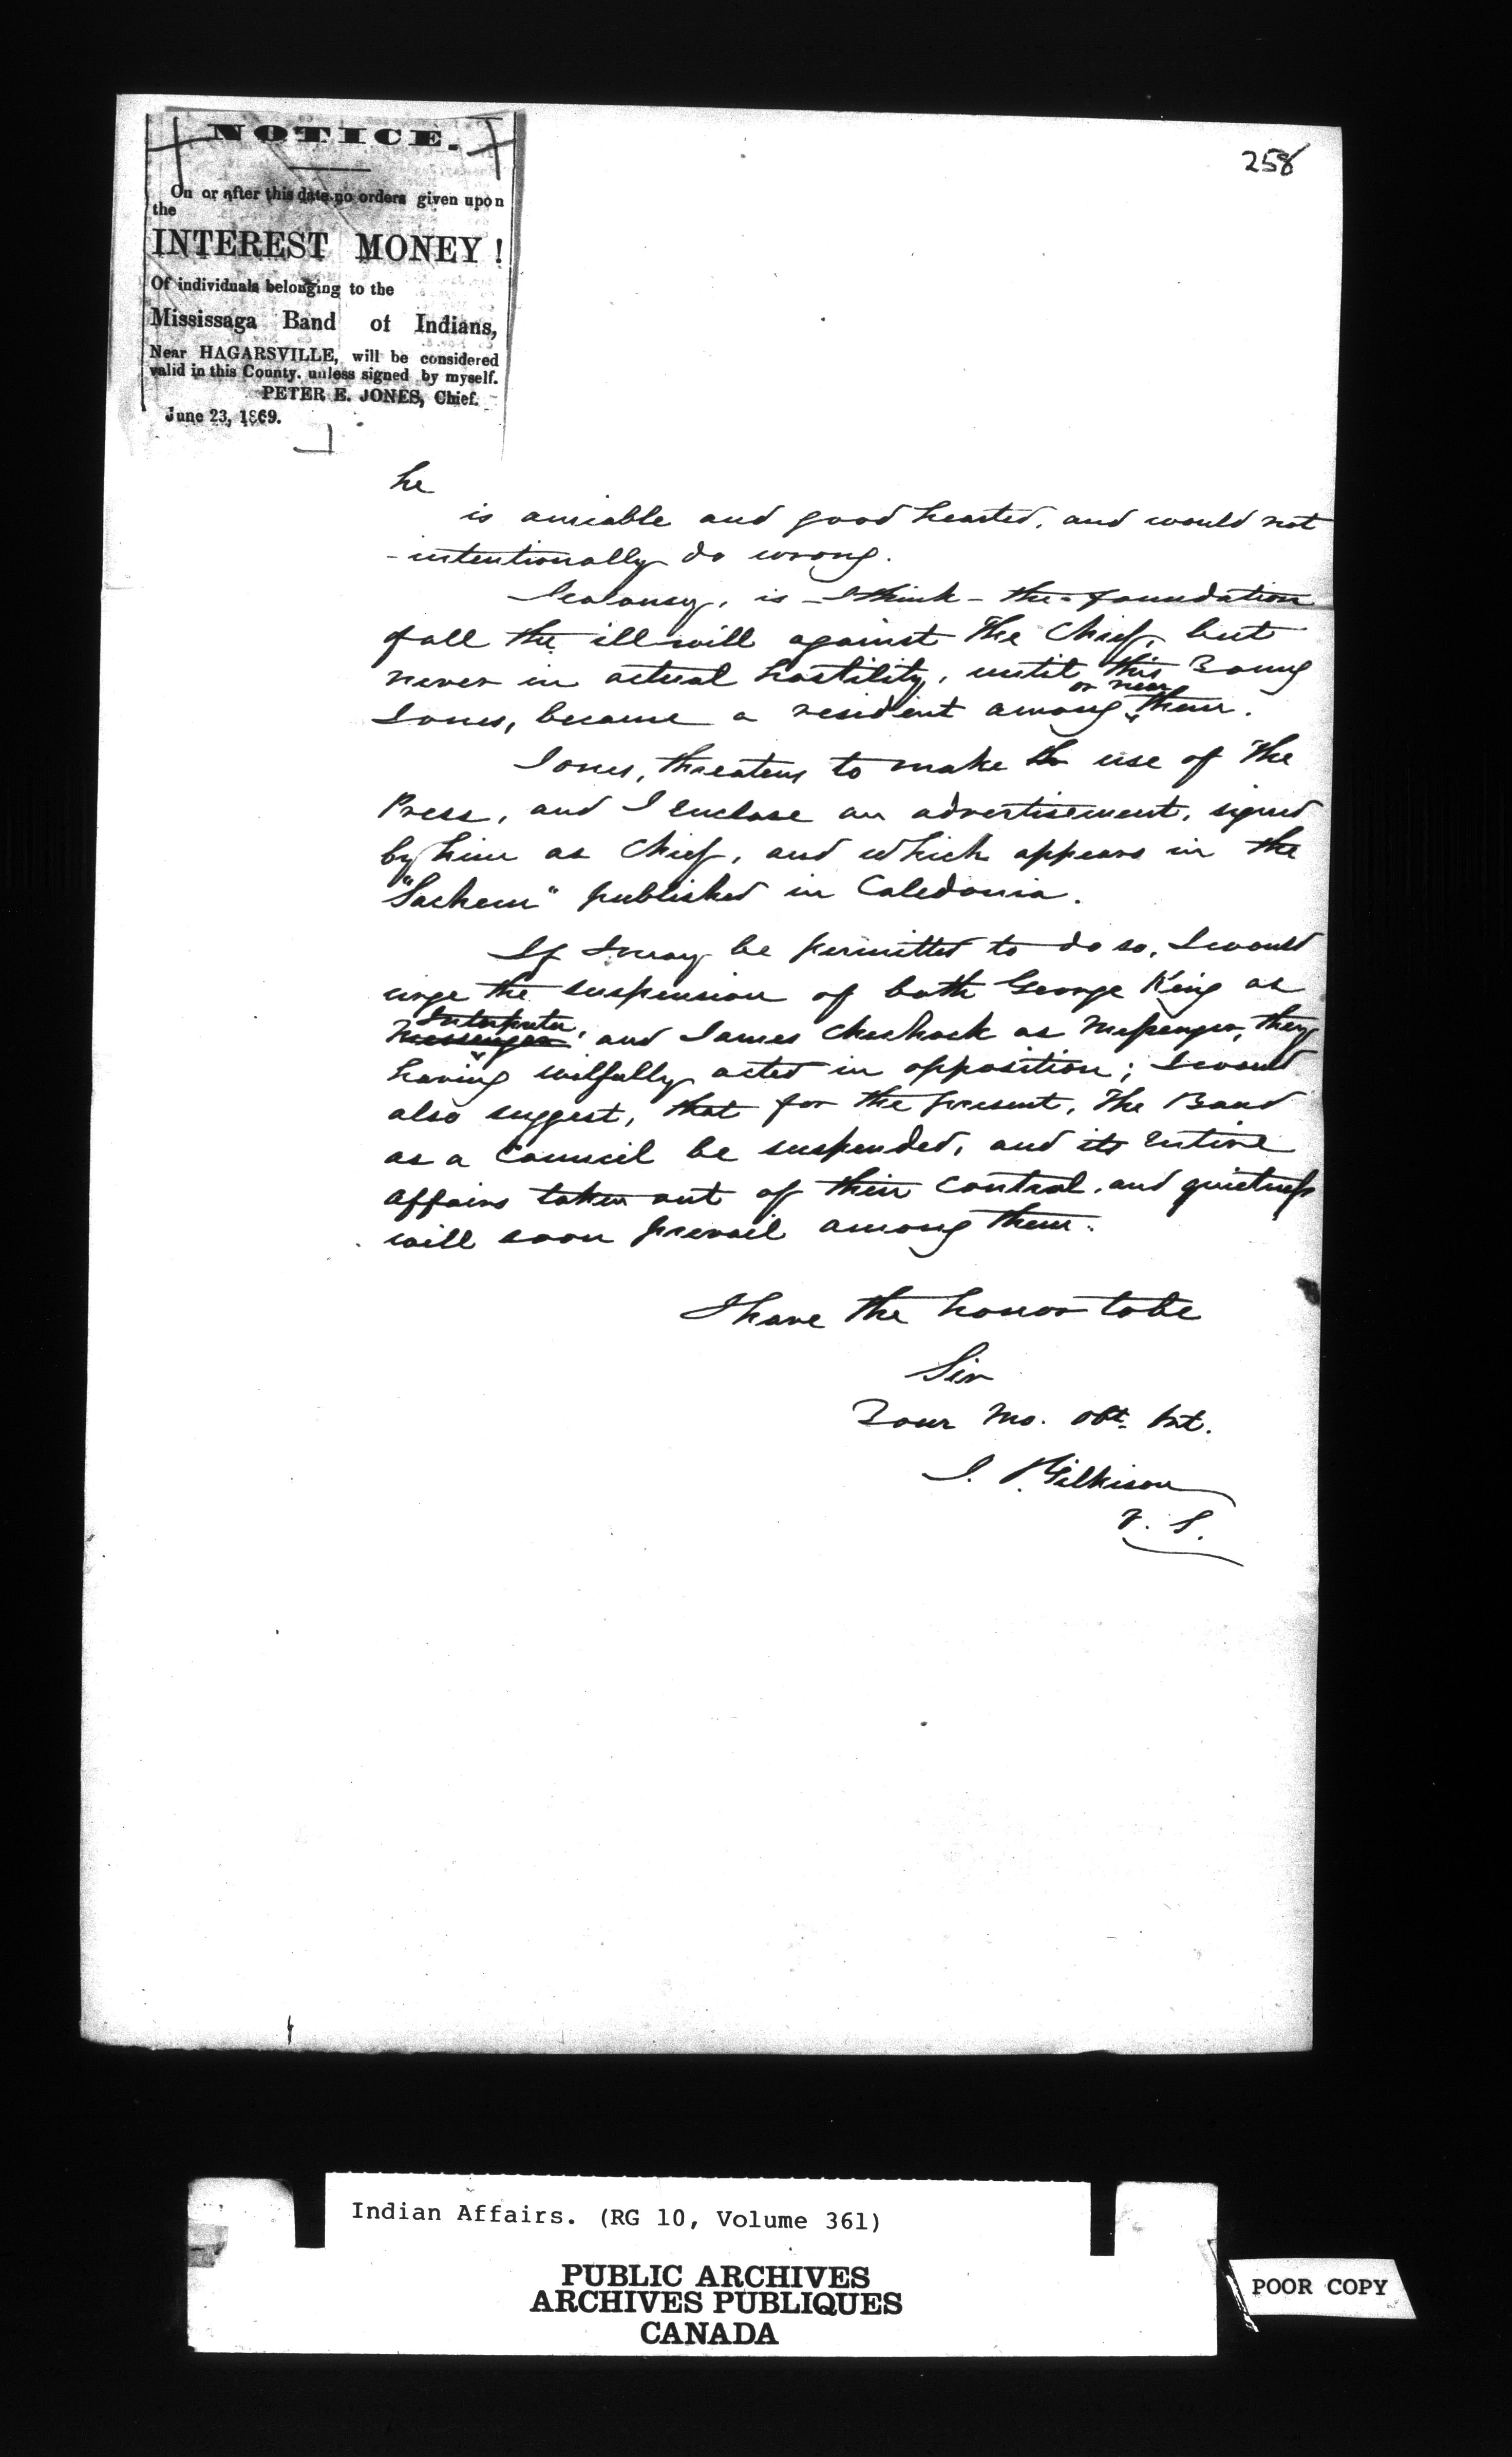 258
NOTICE.
On or after this date no orders given upon
the
INTEREST MONEY!
Of individuals belonging to the
Mississaga Band of Indians,
Near HAGARSVILLE, will be considered
valid in this County. unless signed by myself.
PETER E. JONES, Chief.
June 23, 1869.
he
is amiable and good hearted, and would not
intentionally do wrong.
Jealousy, is – I think – the foundation
of all the ill will against The Chief, but
never in actual hostility, until this Young
or near
Jones, became a resident among them.
Jones, threatens to make the use of The
Press, and I enclose an advertisement, signed
by him as Chief, and which appears in the
"Sachem" published in Caledonia.
If I may be permitted to do so, I would
urge the suspension of both George King as
Interpreter,
Messenger and James Chechock as Messenger, they
having wilfully acted in opposition; I would
also suggest, that for the present, The Band
as a Council be suspended, and its entire
affairs taken out of their control, and quietness
will soon prevail among them.
I have the honor to be
Sir
Your Mo. Obt. Svt.
J. T. Gilkison
V. S.
Indian Affairs. (RG 10, Volume 361)
PUBLIC ARCHIVES
ARCHIVES PUBLIQUES
CANADA
POOR COPY